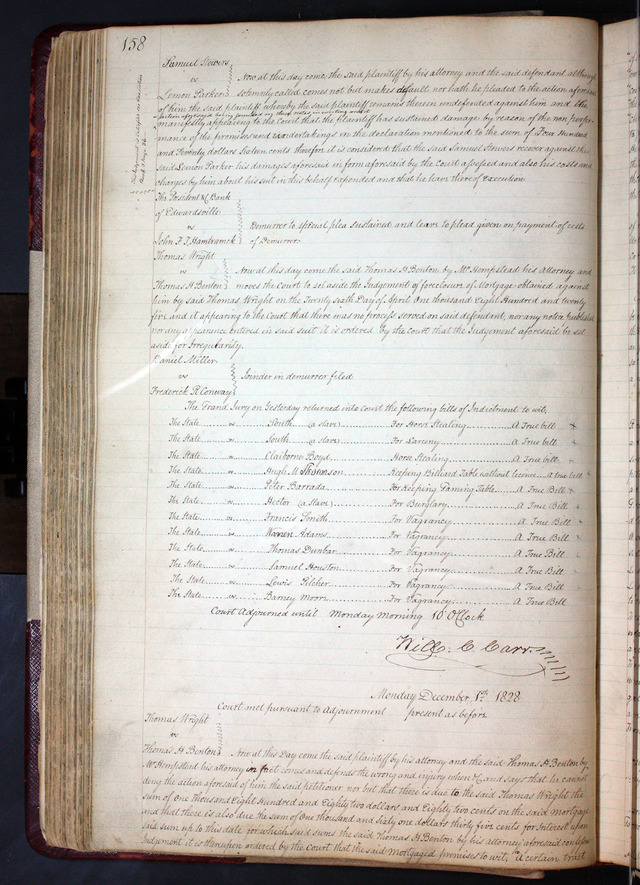 158
Samuel Stowers
vs
Lemon Parker
Now at this day come the said plaintiff by his attorney and the said defendant although
solemnly called comes not but makes default nor hath he pleaded to the action aforesaid
of him the said plaintiff whereby the said plaintiff remains therein undefended against him and the
action aforesaid being founded on
manifestly appearing to the Court that the plaintiff has sustained damage by reason of the non perfor-
mance of the promises and undertakings in the declaration mentioned to the sum of Four Hundred
and Twenty dollars Sixteen cents therefor it is considered that the said Samuel Stowers recover against the
said Lemon Parker his damages aforesaid in form aforesaid by the Court assessed and also his costs and
charges by him about his suit in this behalf expended and that he have thereof execution
The President &C Bank
of Edwardsville
vs
John F. Hamtramck
Demurrer to special plea sustained and leave to plead given on payment of costs
of Demurrer
Thomas Wright
vs
Thomas H Benton
Now at this day come the said Thomas H Benton by Mr Hempstead his Attorney and
moves the Court to set aside the Judgement of foreclosure of Mortgage obtained against
him by said Thomas Wright on the Twenty Sixth Day of April One thousand Eight Hundred and twenty
five and it appearing to the Court that there was no process served on said defendant, nor any notice published
nor any appearance entered in said suit it is ordered by the court that the Judgement aforesaid be set
aside for Irregularity.
Daniel Miller
vs
Frederick R Conway
Joinder in demurrer filed
The Grand Jury on Yesterday returned into Court the following bills of Indictment to wit,
The State vs South (a slave) For Horse Stealing A True bill +
The State vs South (a slave) For Larceny A True bill +
The State vs Claiborne Boyd Horse Stealing A True Bill +
The State vs Hugh M Keeping Billiard Table without licence A true bill +
The State vs Peter Barrada For Keeping Gaming Table A True Bill +
The State vs Hector (a Slave) For Burglary A True Bill +
The State vs Francis Smith For Vagrancy A True Bill +
The State vs Warren Adams For Vagrancy A True Bill +
The State vs Thomas Dunbar For Vagrancy A True Bill +
The State vs Samuel Houston For Vagrancy A True Bill +
The State vs Lewis Pilcher For Vagrancy A True Bill
The State vs Barney Moore For Vagrancy A True Bill
Court Adjourned until Monday Morning 10 OClock
Will. C. Carr
Monday December 1st 1828
Court met pursuant to Adjournment present as before
Thomas Wright
vs
Thomas H Benton
Now at this Day come the said plaintiff by his attorney and the said Thomas H. Benton by
Mr Hempstead his attorney in fact comes and defends the wrong and injury when &C and says that he cannot
deny the action aforesaid of him the said petitioner nor but that there is due to the said Thomas Wright the
sum of One Thousand Eight Hundred and Eighty two dollars and Eighty two cents on the said mortgage
and that there is also due the sum of One thousand and Sixty one dollars thirty five cents for Interest upon
said sum up to this date for which said sums the said Thomas H Benton by his attorney aforesaid confesses
Judgement it is thereupon ordered by the Court that the said mortgaged premises to wit, "A certain tract